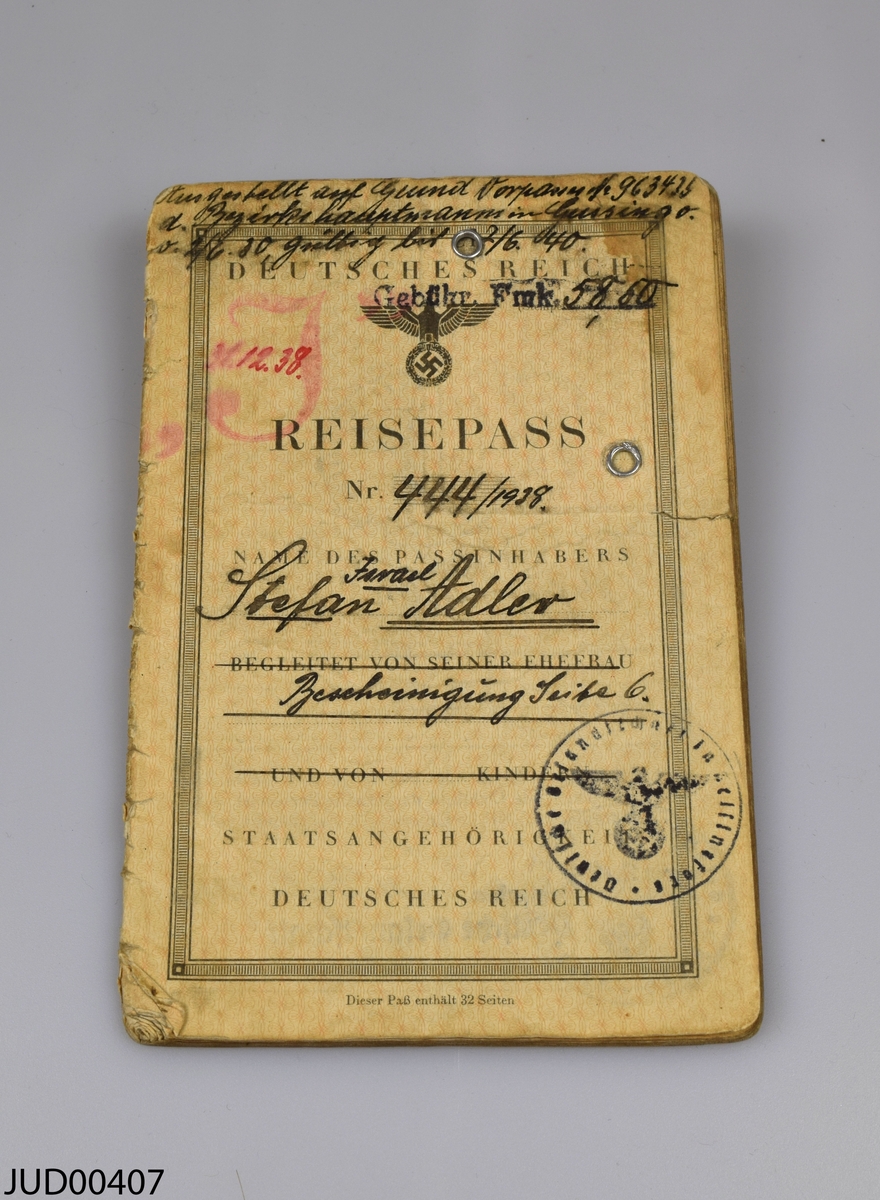 Ausgestellt auf Grund Vorpasses Nr 963435
d. Bezirkshauptmanns in Güssing v.
v. 2/6. 30 gültig bis 2/6. 40.
DEUTSCHES REICH
Gebühr. Fmk. 58,60
J
31.12.38.
REISEPASS
Nr. 444/1938.
NAME DES PASSINHABERS
Israel
Stefan Adler
BEGLEITET VON SEINER EHEFRAU
Bescheinigung Seite 6.
UND VON KINDERN
STAATSANGEHÖRIGKEIT
DEUTSCHES REICH
Deutsche Gesandtschaft in Helsingfors
Dieser Paß enthält 32 Seiten
JUD00407